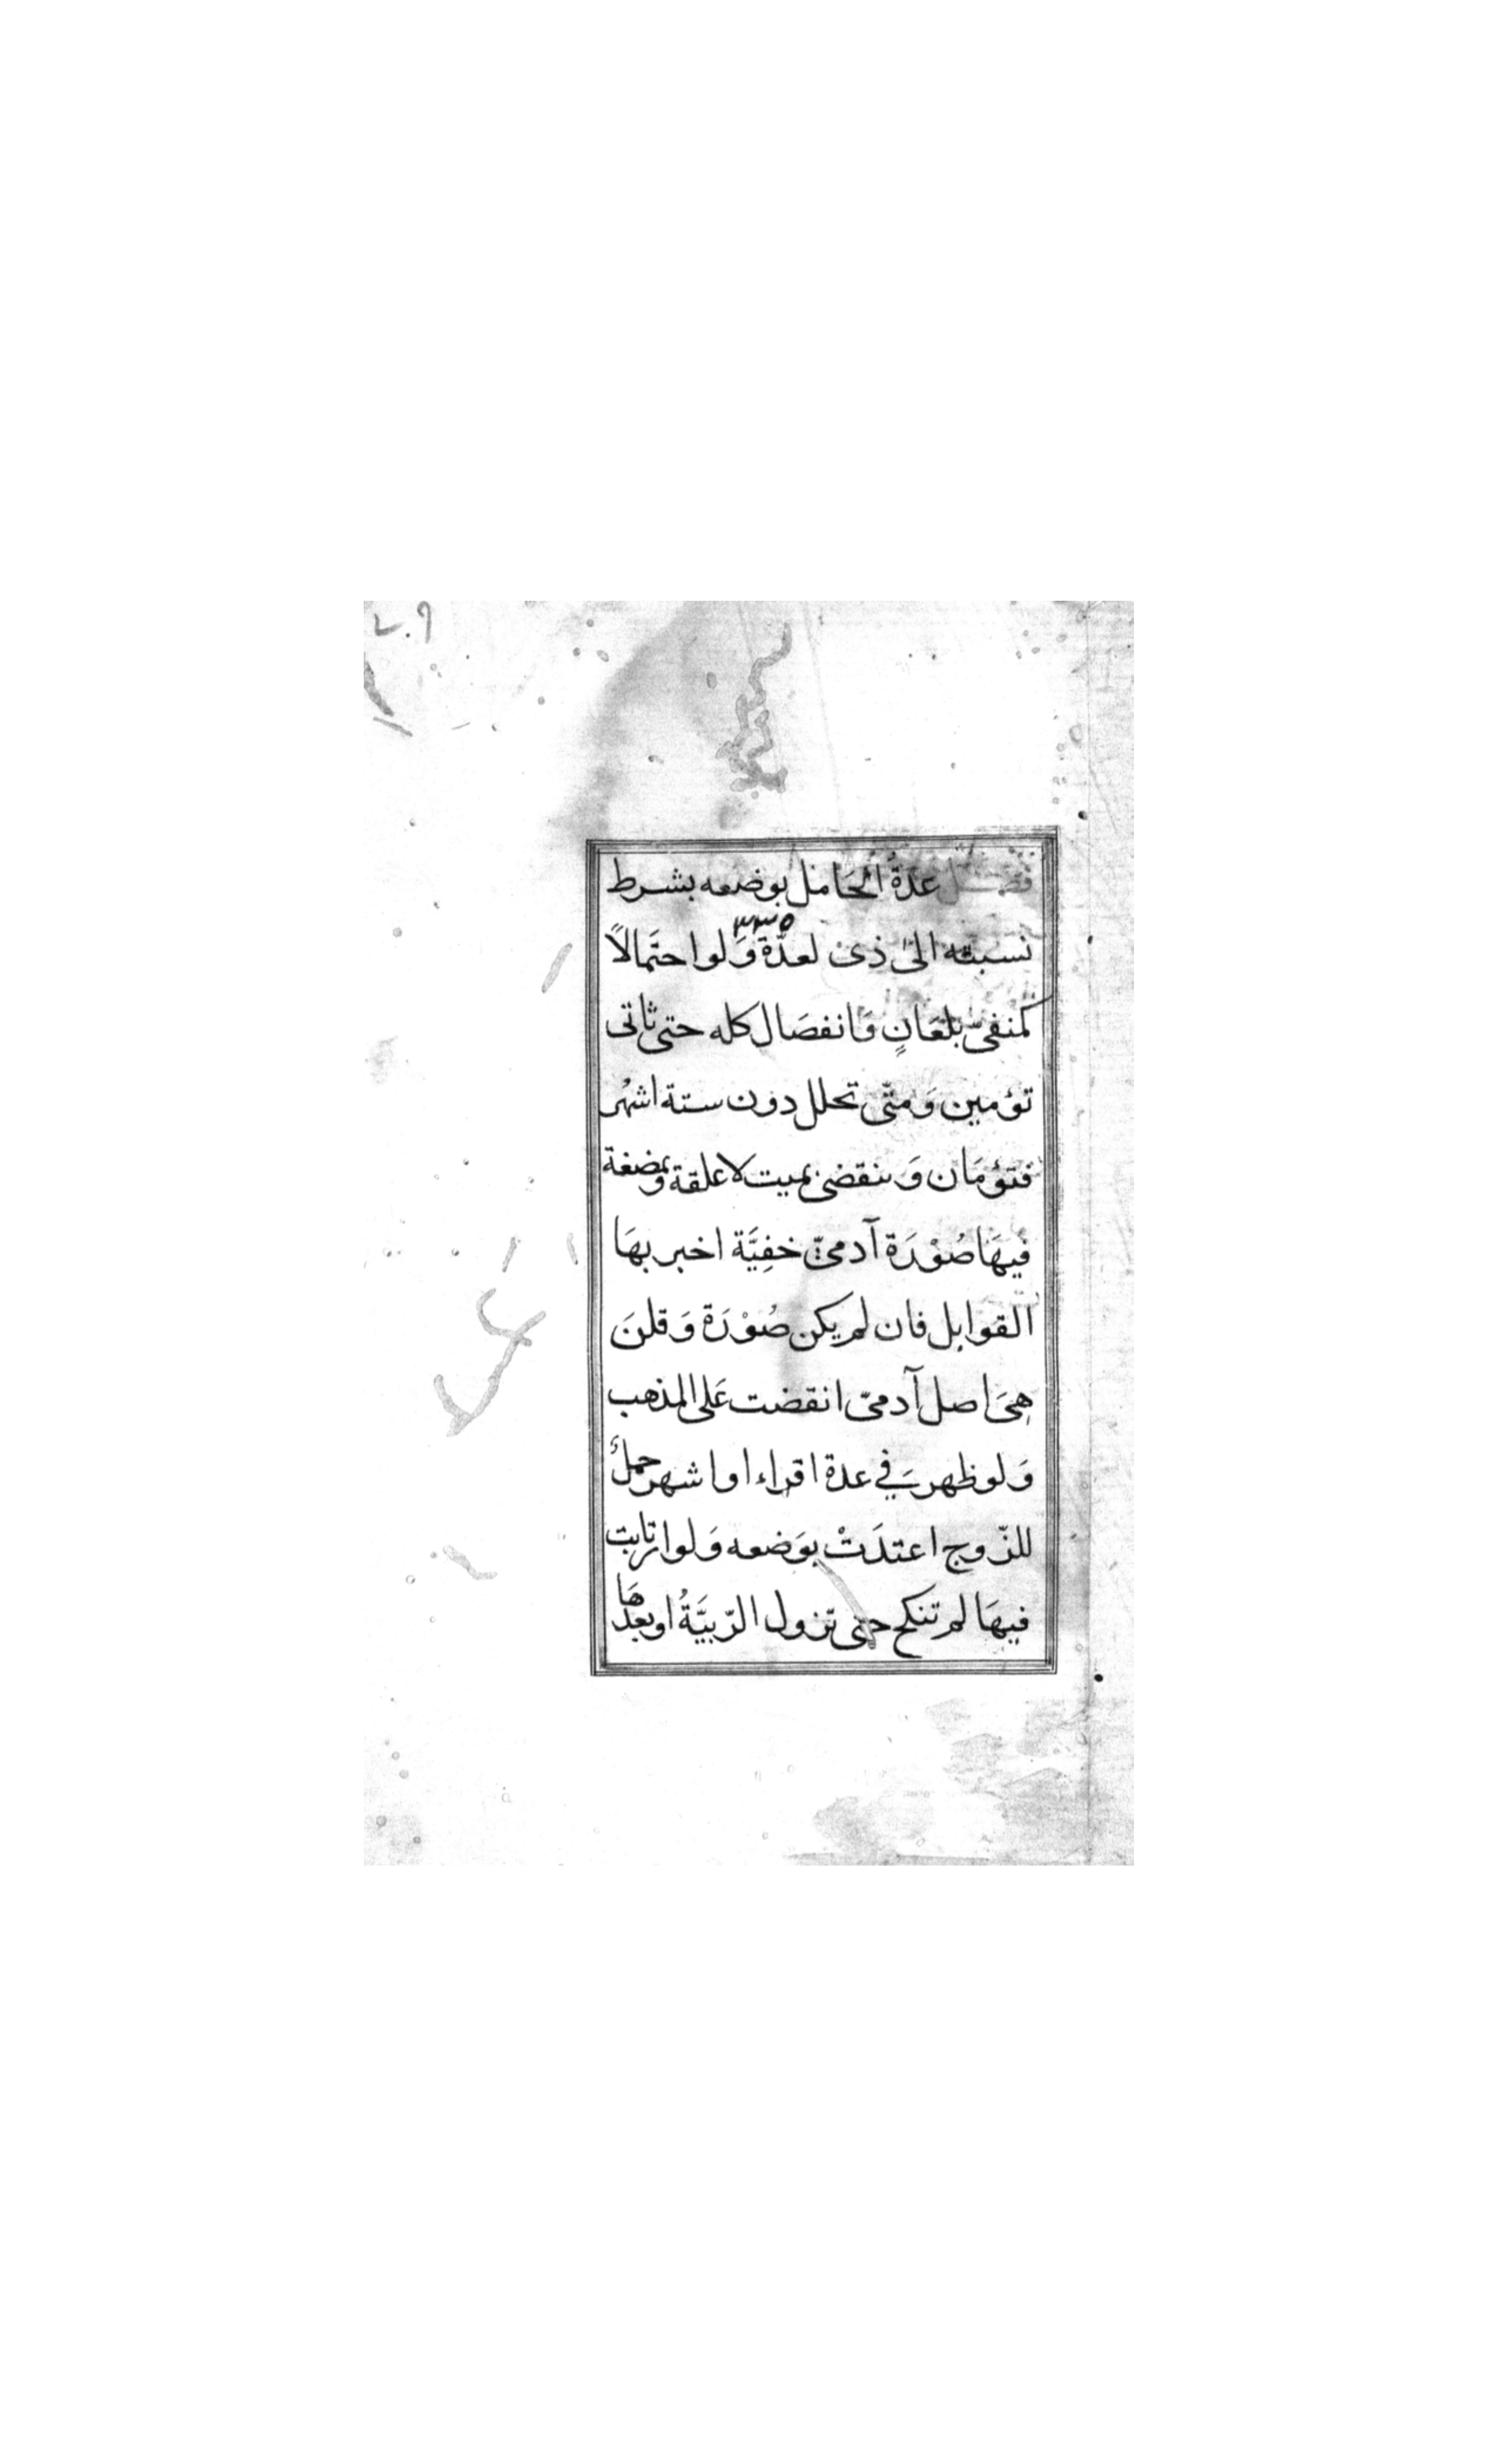 ٢٠٩
فصل عدة الحامل بوضعه بشرط
٣٣٥
نسبته الى ذى لعدّة وَلو احتمالاً
كمنفىّ بلعَانٍ وَانفصَال كله حتى ثاتى
تؤمين وَمتّى تحلل دون ستة اشهُر
فتؤمَان وَىنقضى بميت لا علقة وبمضغة
فيهَا صُوْرَة آدمىّ خفِيَّة اخبر بهَا
القوابل فان لم يكن صُوْرَة وَقلنَ
هِىَ اصل آدمىّ انقضت عَلى المذهب
وَلو ظهر فى عدة اقراء او اشهر حملٌ
للزّوج اعتدَتْ بوَضعه وَلو ارتابت
فيهَا لم تنكح حتى تزول الرّيبَّةُ او بعدهَا